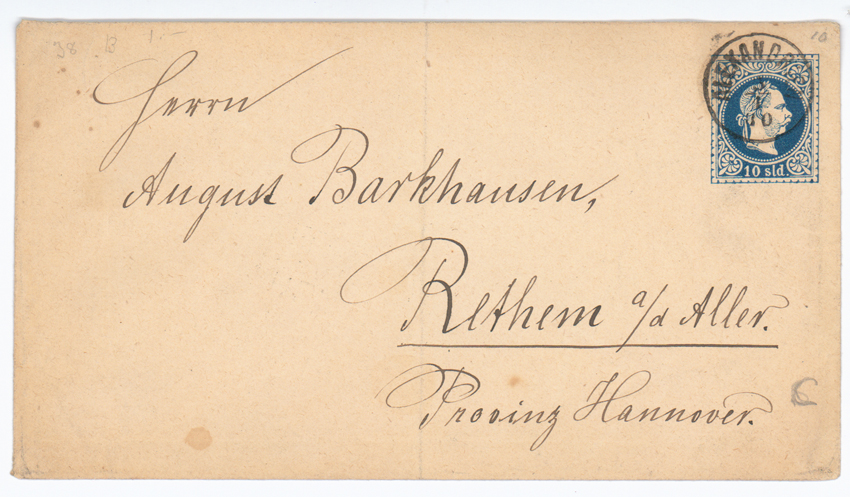 38 B 1.-
10
Herrn
August Barkhausen,
Rethem a/d Aller.
Provinz Hannover.
10 sld.